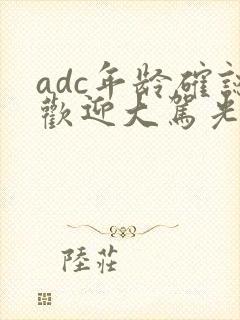 adc年龄確認
歡迎大駕光
陸莊